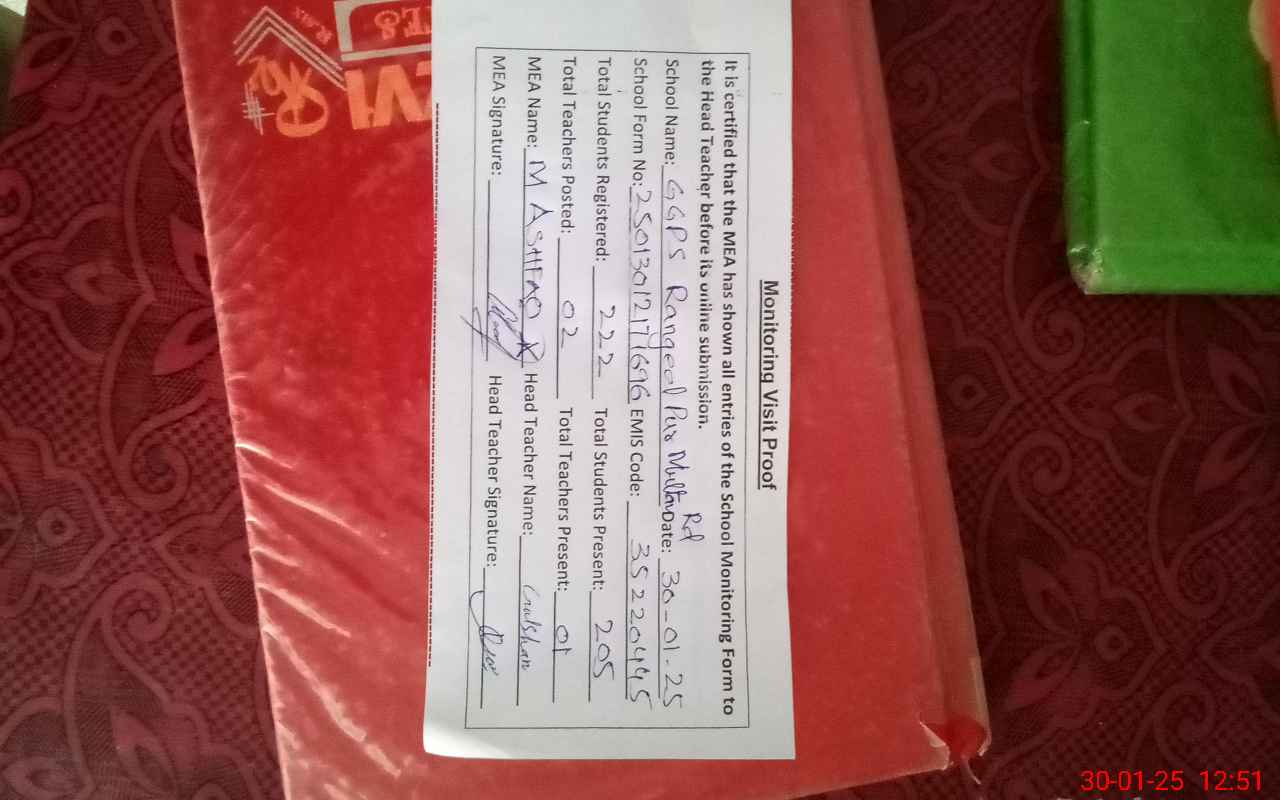 Monitoring Visit Proof
It is certified that the MEA has shown all entries of the School Monitoring Form to
the Head Teacher before its online submission.
School Name: GGPS Rangeel Pur Multan Rd Date: 30-01-25
School Form No: 25013012171696 EMIS Code: 35220445
Total Students Registered: 222 Total Students Present: 205
Total Teachers Posted: 02 Total Teachers Present: 01
MEA Name: M ASHFAQ Head Teacher Name: Gulshan
MEA Signature: Head Teacher Signature:
30-01-25 12:51